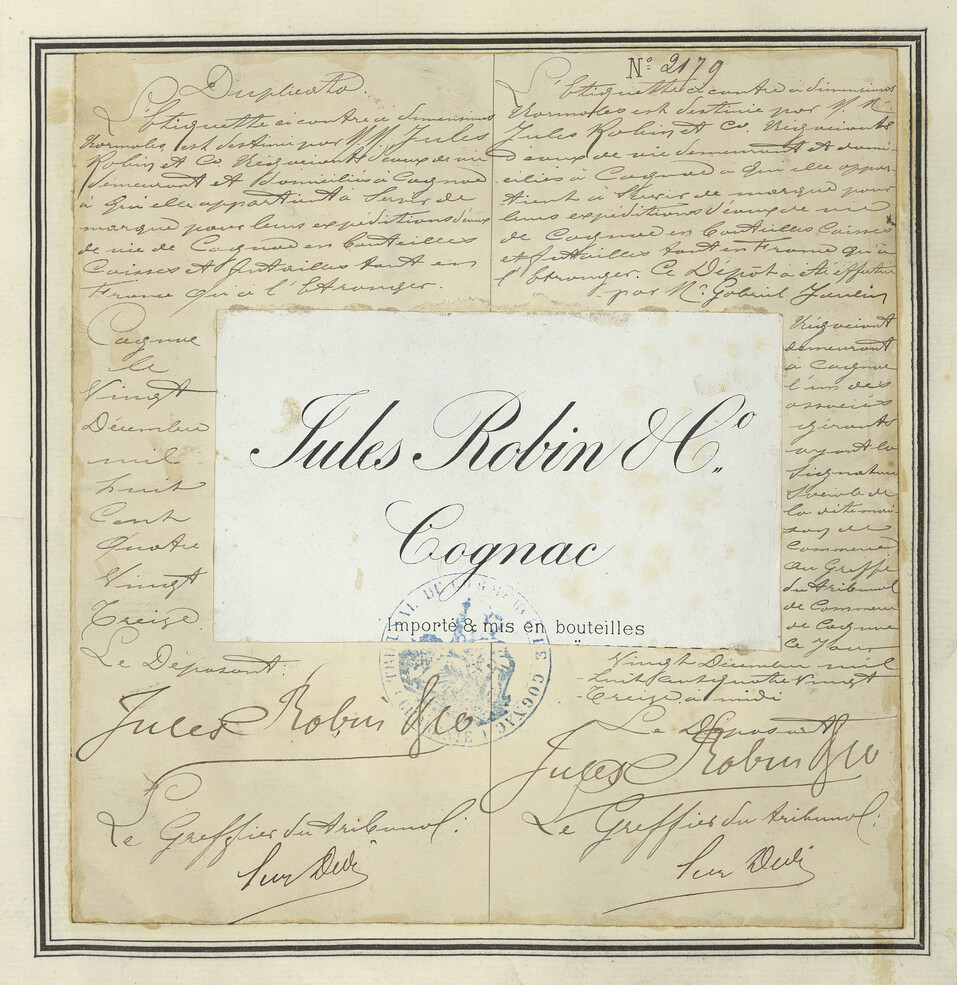 Duplicata.
L'étiquette ci contre à dimensions
Normales est destinée par MM. Jules
Robin et Co. Négociants d'eaux de vie
demeurant et domiciliés à Cognac
à qui elle appartient à servir de
marque pour leurs expéditions d'eaux
de vie de Cognac en bouteilles
Caisses et futailles tant en
France qu'à l'Etranger.
Cognac
le
Vingt
Décembre
mil
huit
Cent
Quatre
Vingt
Treize.
Le Déposant:
Jules Robin & Co
Le Greffier du tribunal:
No 2179
L'étiquette ci contre à dimensions
Normales est destinée par MM.
Jules Robin et Co. Négociants
d'eaux de vie demeurant et domi-
ciliés à Cognac à qui elle appar-
tient à servir de marque pour
leurs expéditions d'eaux de vie
de Cognac en bouteilles Caisses
et futailles tant en France qu'à
l'étranger. Ce Dépôt a été effectué
par Mr. Gabriel
Négociant
demeurant
à Cognac
l'un des
associés
gérants
ayant la
signature
Sociale de
la dite mai-
son de
Commerce
au Greffe
du tribunal
de Commerce
de Cognac
Ce Jour
Vingt Décembre mil
huit cent quatre Vingt
Treize à midi
Le Déposant
Jules Robin & Co
Le Greffier du tribunal:
Jules Robin & Co.
Cognac
Importé & mis en bouteilles
TRIBUNAL DE COMMERCE DE COGNAC
(CHARENTE)